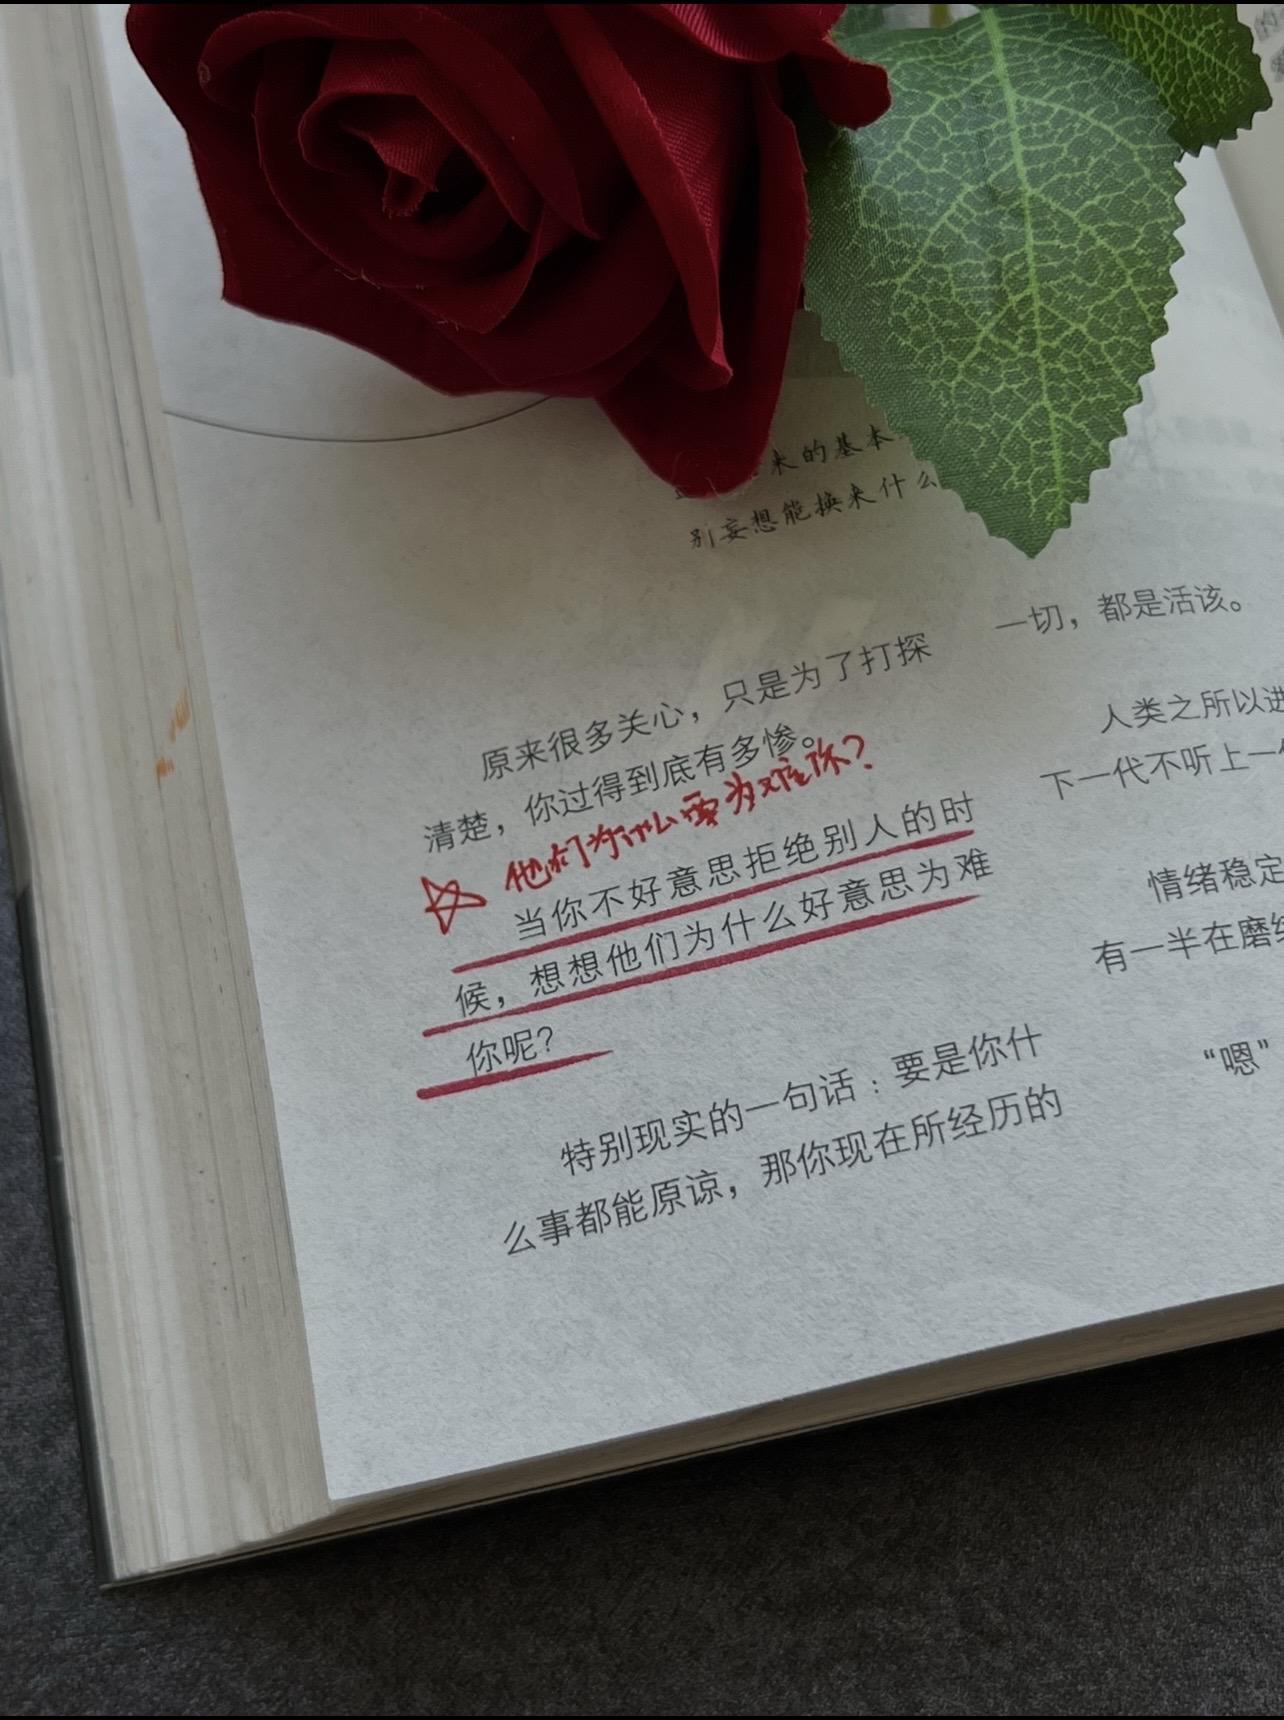 来的基本
别妄想能换来什么
原来很多关心，只是为了打探
清楚，你过得到底有多惨。
他们为什么要为难你？
当你不好意思拒绝别人的时
候，想想他们为什么好意思为难
你呢？
特别现实的一句话：要是你什
么事都能原谅，那你现在所经历的
一切，都是活该。
人类之所以进
下一代不听上一
情绪稳定
有一半在磨
“嗯”